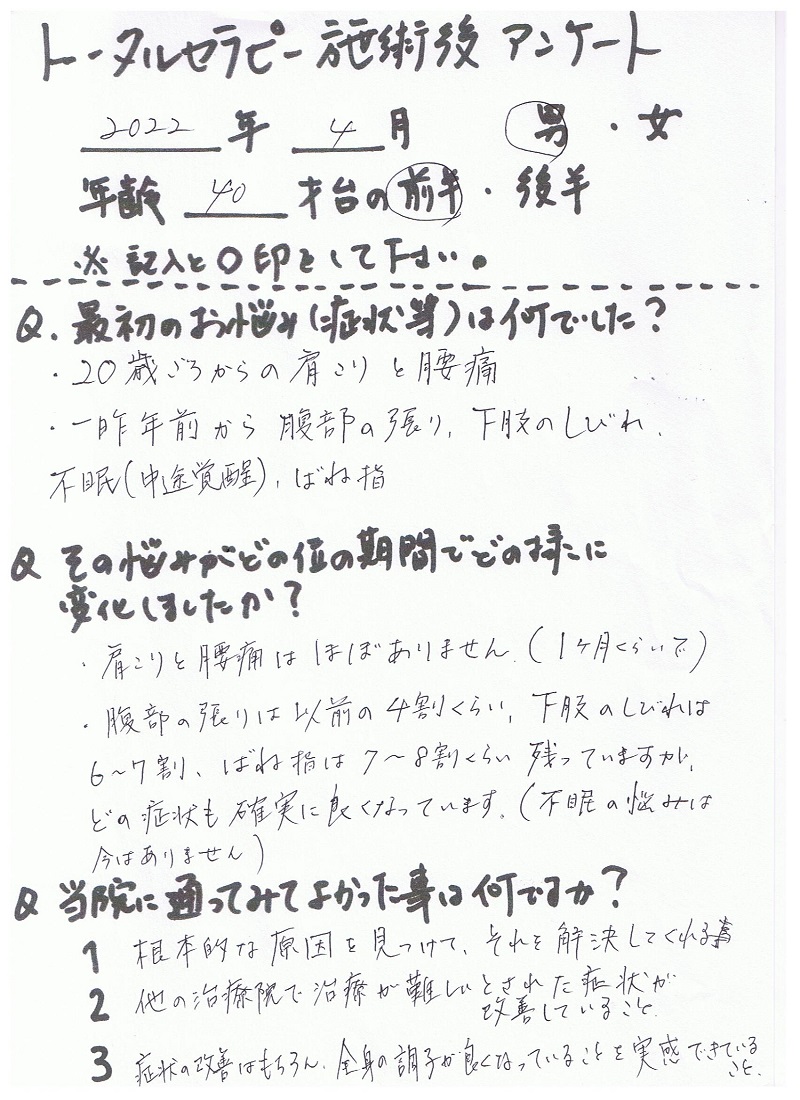 トータルセラピー施術後 アンケート
2022 年 4 月 男・女
年齢 40 才台の前半・後半
※記入と〇印をして下さい。
Q. 最初のお悩み(症状等)は何でした?
・20歳ごろからの肩こりと腰痛
・一昨年前から 腹部の張り、下肢のしびれ、
不眠(中途覚醒)、ばね指
Q その悩みがどの位の期間でどの様に
変化しましたか?
・肩こりと腰痛は ほぼありません。(1ヶ月くらいで)
・腹部の張りは以前の4割くらい、下肢のしびれは
6〜7割、ばね指は7〜8割くらい 残っていますが、
どの症状も確実に良くなっています。(不眠の悩みは
今はありません)
Q 当院に通ってみてよかった事は何ですか?
1 根本的な原因を見つけて、それを解決してくれる事
2 他の治療院で治療が難しいとされた症状が
改善していること。
3 症状の改善はもちろん、全身の調子が良くなっていることを実感できている
こと。